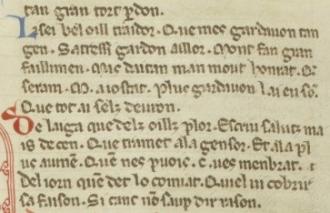 tan gran tort perdon.
L sei bel oill traidor. Que mes gardauon tan
gen. Satressi gardon aillor. Mout fan gran
faillimen. Mas daitan man mout honrat. Si
seram. M. aiostat. Plus gardauon lai eu so.
Que tot ai selz deuiron.
De laiga que delz oillz plor. Escriu salutz ma
is de cen. Que tramet ala gensor. Et ala pl
us auinen. Quen nes puois. e ues menbrat.
del iorn quem det lo comiat. Quel ui cobrir
sa faison. Si canc non saup dir rason.